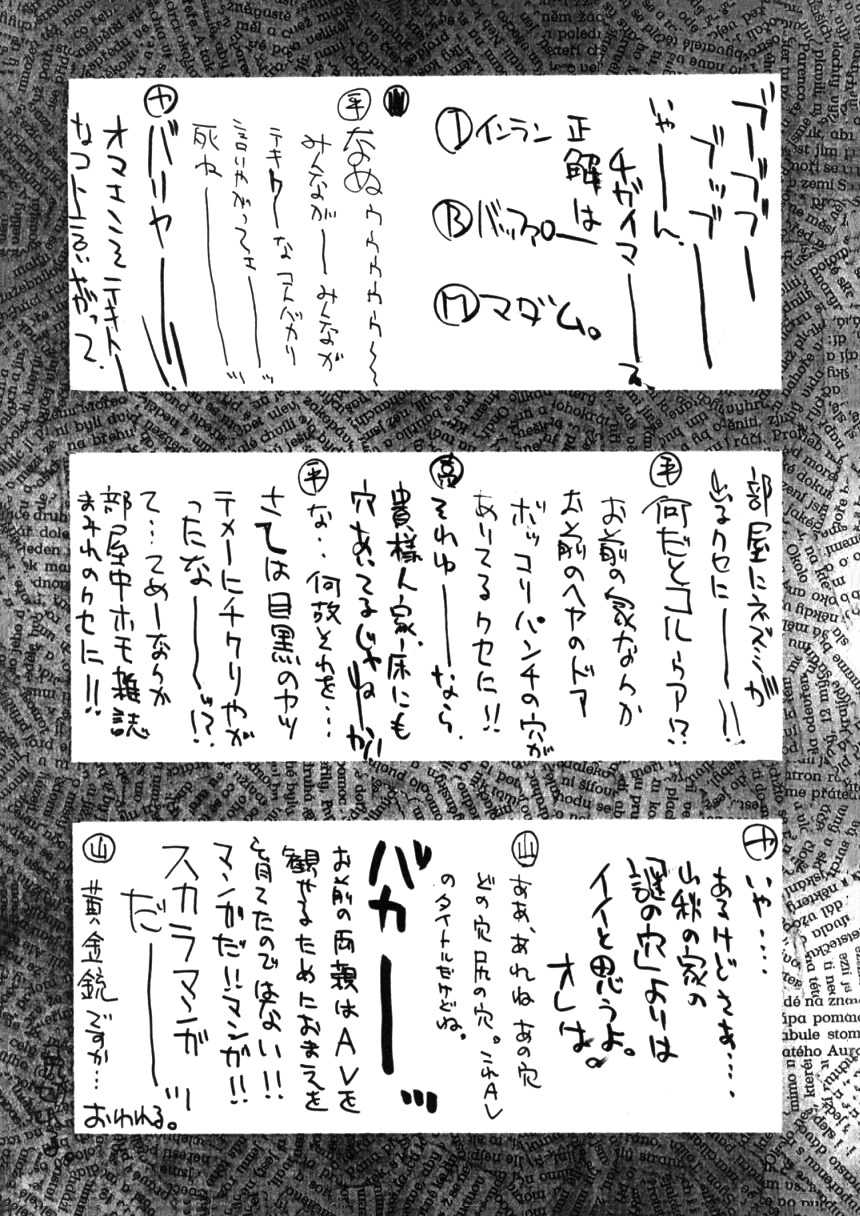 ブーブブー
ブッブーー
いやーーん、
チガイマーーース、
正解は
Ⓘインラン
Ⓑバッファロー
Ⓜマダム。
㊥なぬゥゥゥゥゥゥ〜〜
みんながーーみんなが
テキトーなコトバカリ
言いやがってェーーーッ
死ねーーーーッ
ヤ バリヤーーーッ!!
オマエこそテキトー
なコト言いやがって、
部屋にネズミが
出るクセにーーー!!
平 何だとコルゥア!?
お前の家なんか
お前のヘヤのドア
ボッコリパンチの穴が
ありてるクセに!!
高 それゆーーなら、
貴様ん家、床にも
穴あいてるじゃねーか!!
平 な‥何故それを…
さては目黒のヤツ
テメーにチクリやが
ったなーーー!?
て…てめーなんか
部屋中ホモ雑誌
まみれのクセに!!
ヤ いや‥‥
あるけどさぁ‥‥、
山秋の家の
「謎の穴」よりは
イイと思うよ。
オレは。
山 ああ、あれね あの穴
どの穴 尻の穴。これAV
のタイトルだけどね。
バカーー…
お前の両親はAVを
観せるためにおまえを
育てたのではない!!
マンガだ!!マンガ!!
スカラマンガ
だーーーッ
山 黄金銃ですか…
おわれる。